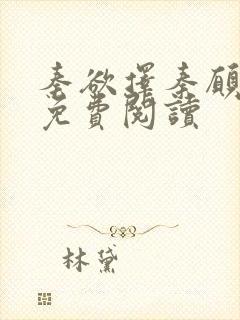 秦欲擇秦顧
免費閱讀
林黛